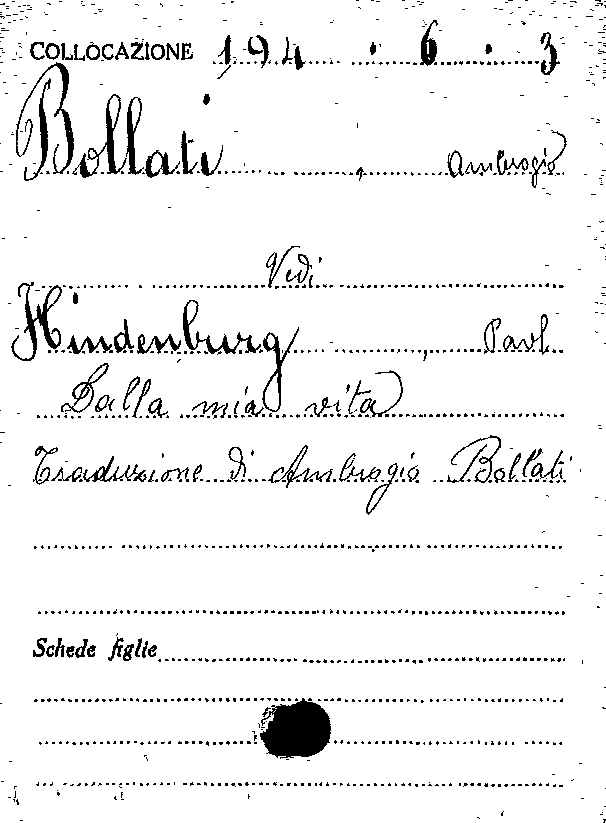 COLLOCAZIONE 194 . 6 . 3
Bollati , Ambrogio
Vedi
Hindenburg , Paul
Dalla mia vita
Traduzione di Ambrogio Bollati
Schede figlie